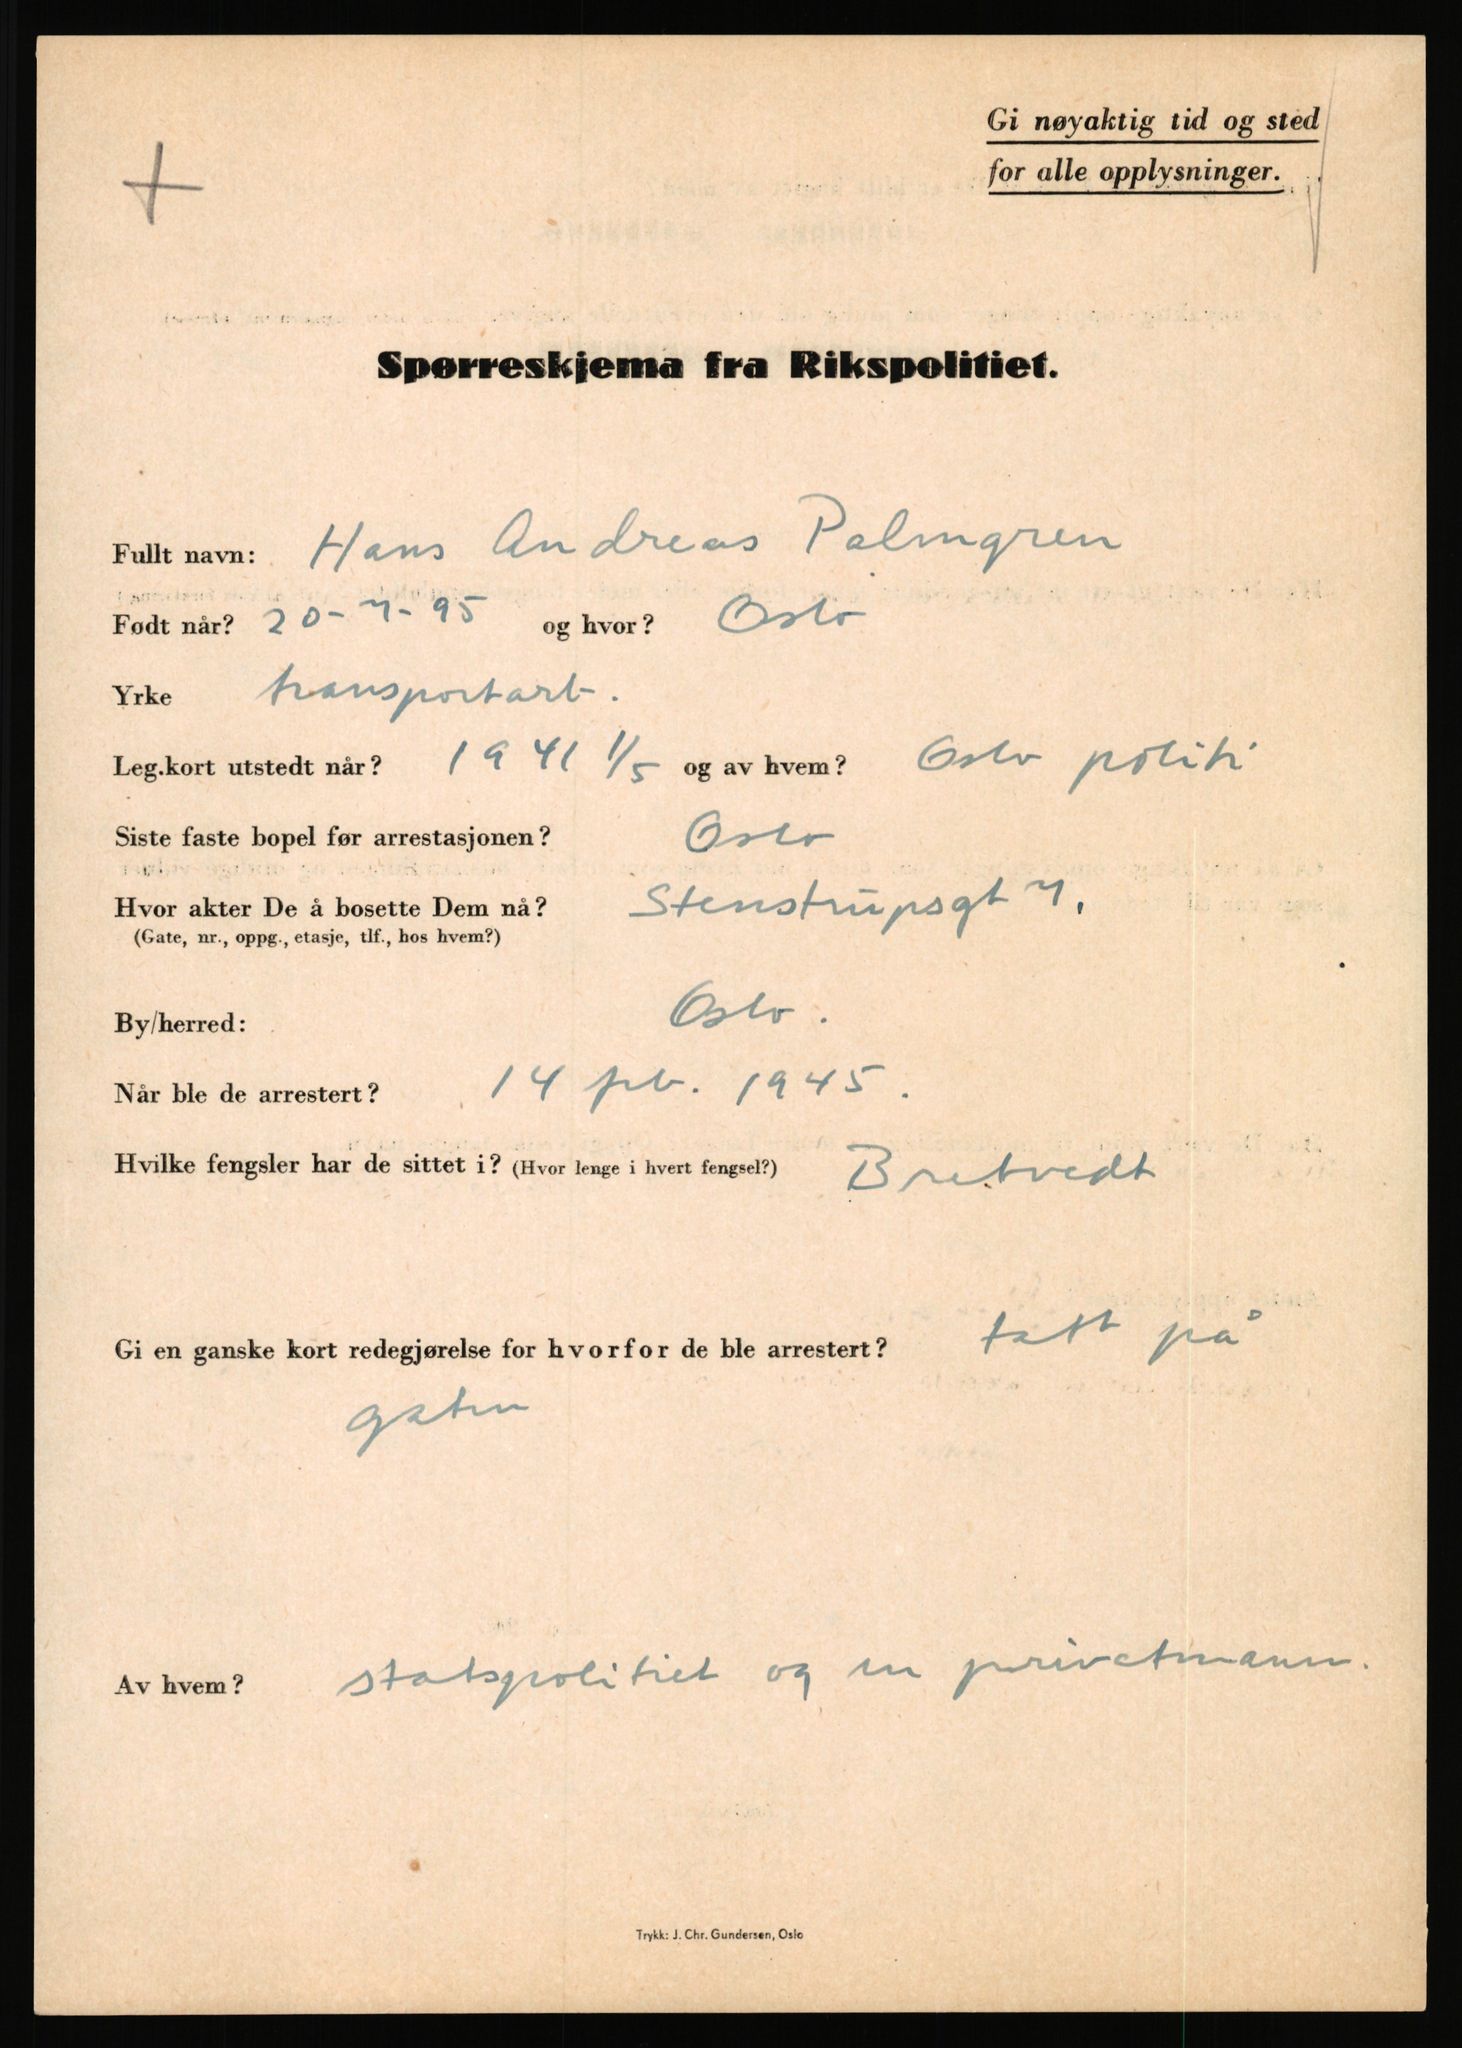 Gi nøyaktig tid og sted
for alle opplysninger.
Spørreskjema fra Rikspolitiet.
Fullt navn: Hans Andreas Palmgren
Født når? 20-7-95 og hvor? Oslo
Yrke transportarb.
Leg.kort utstedt når? 1941 1/5 og av hvem? Oslo politi
Siste faste bopel før arrestasjonen? Oslo
Hvor akter De å bosette Dem nå? Stenstrupsgt 7.
(Gate, nr., oppg., etasje, tlf., hos hvem?)
By/herred: Oslo.
Når ble de arrestert? 14 feb. 1945.
Hvilke fengsler har de sittet i? (Hvor lenge i hvert fengsel?) Bretvedt
Gi en ganske kort redegjørelse for hvorfor de ble arrestert? tatt på
gaten
Av hvem? statspolitiet og en privatmann.
Trykk: J. Chr. Gundersen, Oslo